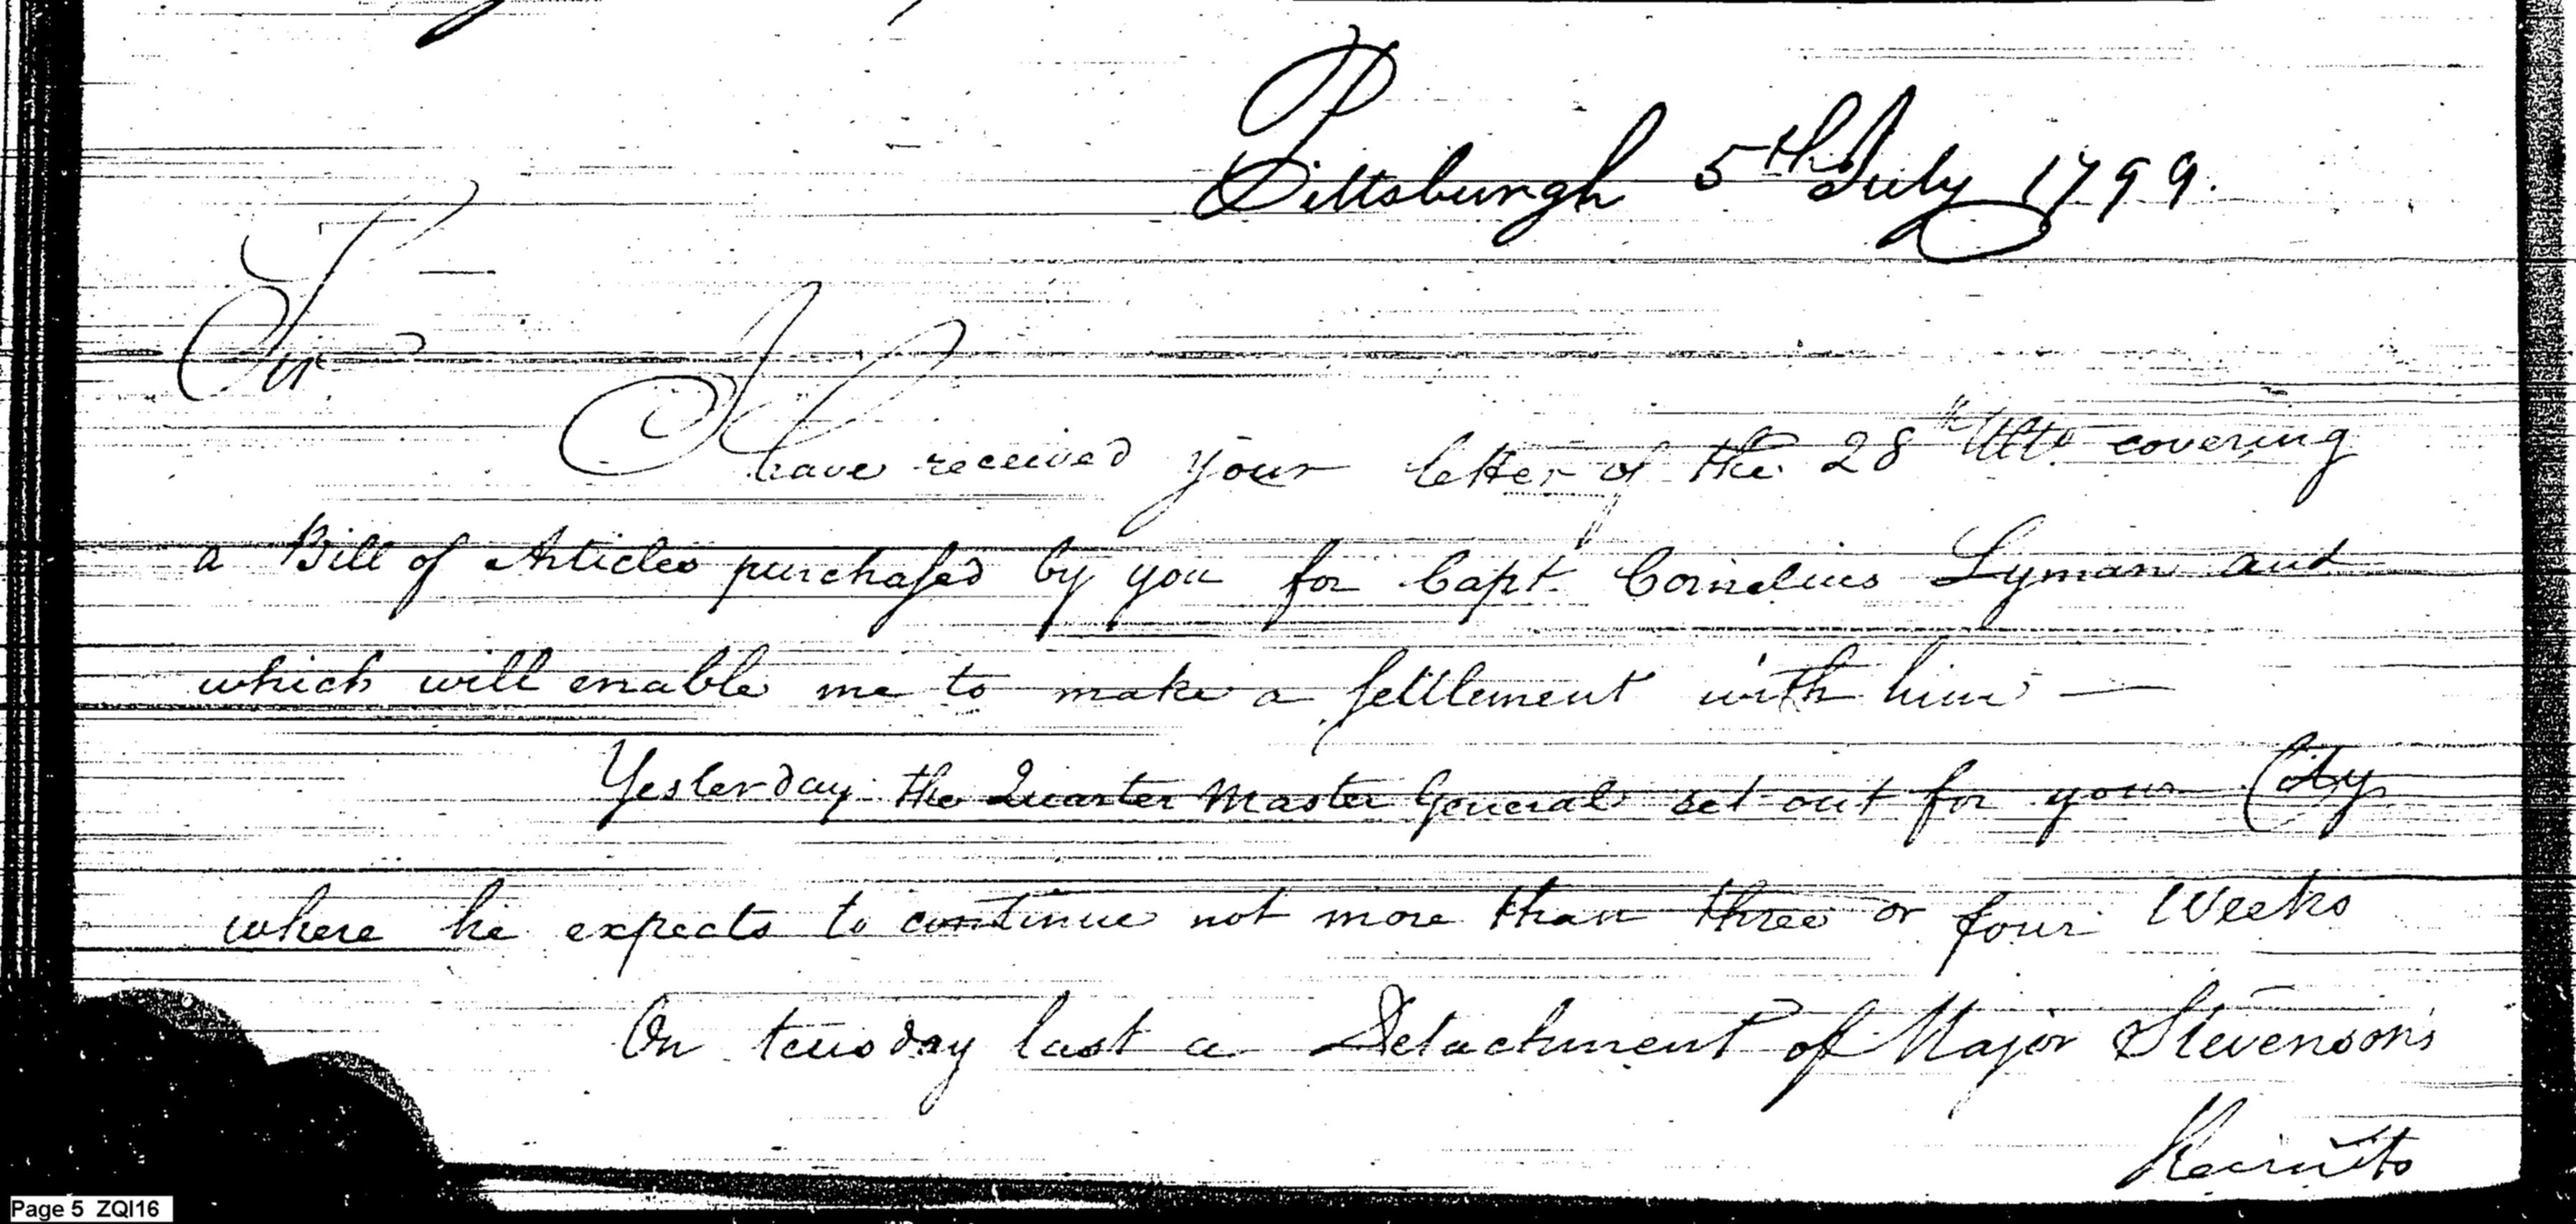 Pittsburgh 5th July 1799.
Sir
I have received your letter of the 28th Ulto. covering
a Bill of Articles purchased by you for Capt. Cornelius Lyman and
which will enable me to make a settlement with him —
Yesterday the Quarter Master General set out for your City
where he expects to continue not more than three or four Weeks
On teusday last a Detachment of Major Stevensons
Recruits
Page 5 ZQI16